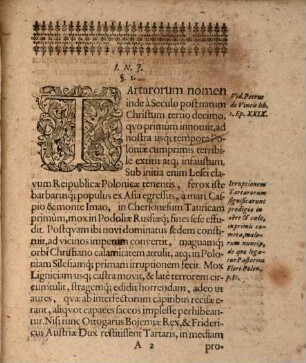 I. N. J.
§. I.
TArtarorum nomen
inde à Seculo post natum
Christum tertio decimo,
qvo primùm innotuit, ad
nostra usq; tempora Po-
lonæ cumprimis terribi-
le extitit atq; infaustum.
Sub initia enim Lesci cla-
vum Reipublicæ Polonicæ tenentis, ferox iste
barbarusq; populus ex Asia egressus, à mari Caspio
& monte Imao, in Chersonesum Tauricam
primùm, mox in Podoliæ Russiæq; fines sese effu-
dit. Postqvam ibi novi dominatus sedem consti-
tuit, ad vicinos imperium convertit, magnamq;
orbi Christiano calamitatem attulit, atq; in Polo-
niam Silesiamq; primam irruptionem fecit. Mox
Lignicium usq; castra movit, & late terrorem cir-
cumtulit, stragemq; edidit horrendam, adeo ut
aures, qvas ab interfectorum capitibus recise-
rant, aliqvot capaces saccos implesse perhibean-
tur. Nisi tunc Ottogarus Bojemiæ Rex, & Frideri-
cus Austriæ Dux restitissent Tartaris, in mediam
A 2 pro-
Vid. Petrus
de Vineis lib.
1. Ep. XXIX.
Irruptionem
Tartarorum
significarunt
prodigia in
aëre & cœlo,
imprimis co-
meta, malo-
rum nuncio,
de qvo lega-
tur Pastorius
Flori Polon.
p.